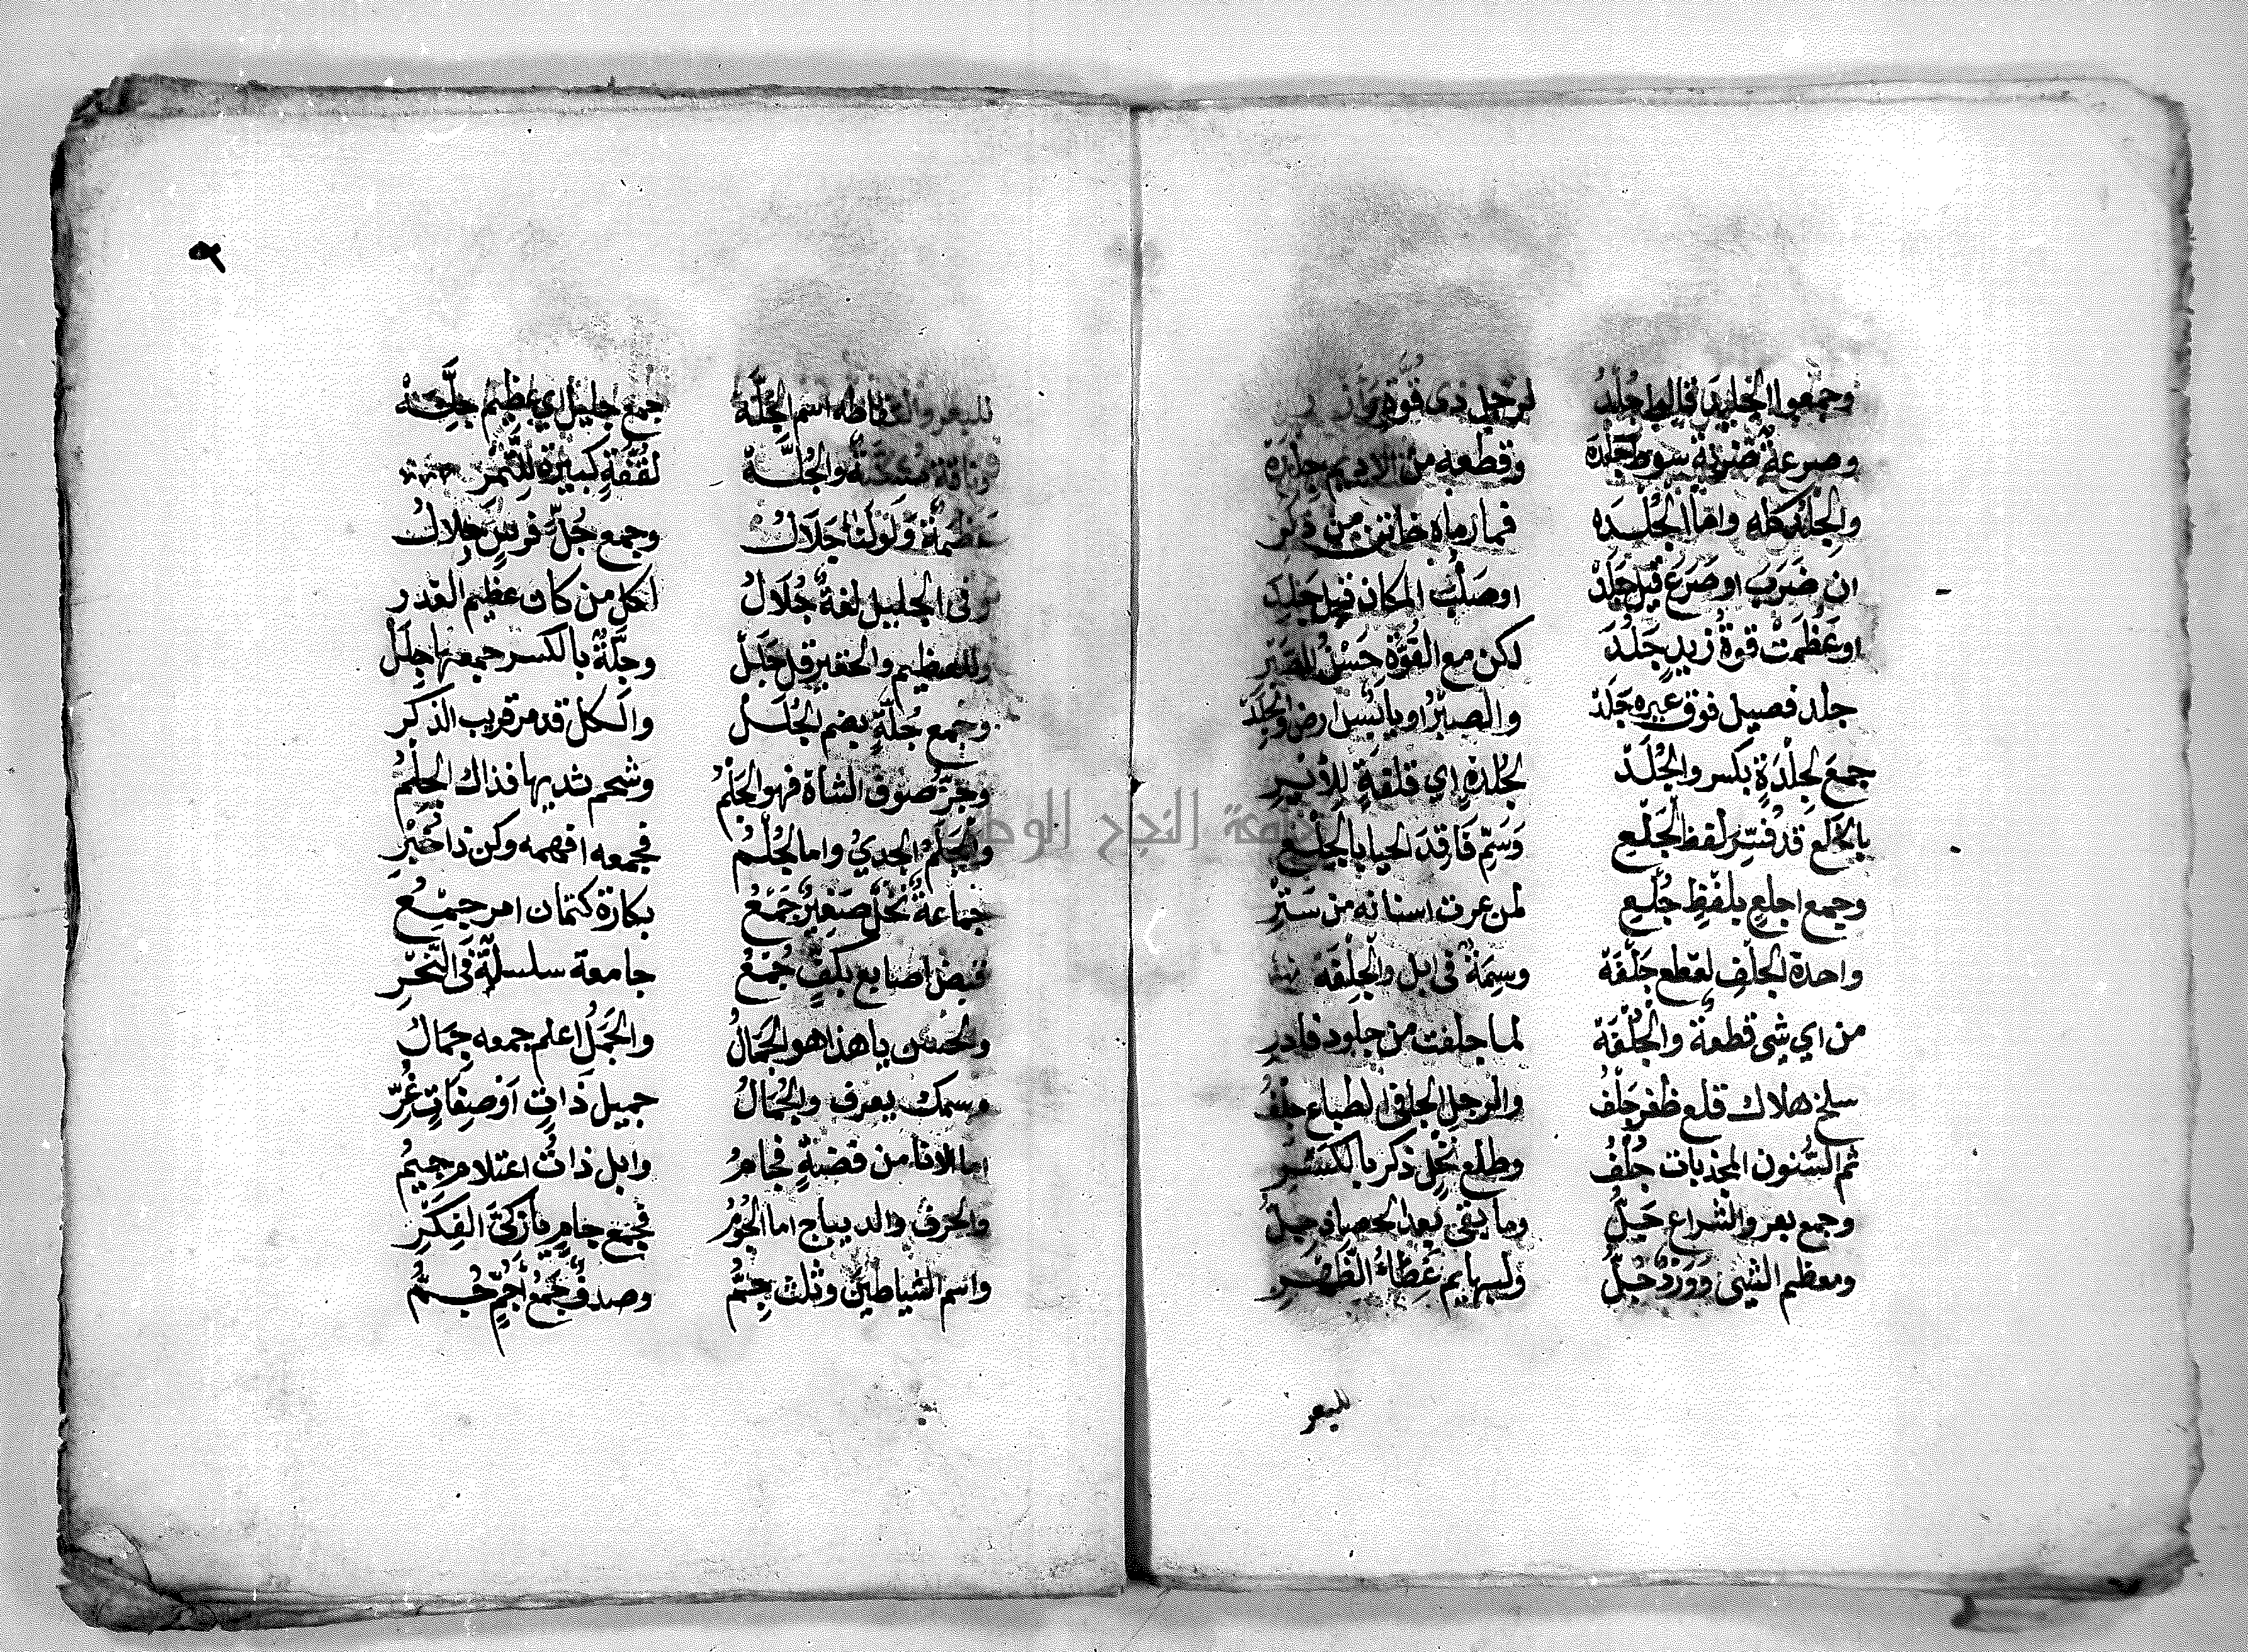 وجمعوا الجليد قالوا جُلُدُ لرجل ذى قُوّة
وصرعةٌ ضربة سوط جَلْدَه وقطعه من الاديم جِلْدَه
والجِلْدُ كله واما الجُلْدَه فما زماه خاتن من ذكر
ان ضَرَبَ او صَرَعَ قيل جَلَدْ او صَلُبَ المكان قل جَلِدَ
او عَظُمَتْ قوة زيدٍ جَلُدَ لكن مع القُوّة حُسْنُ الصَبْر
جلد فصيل فوق غيره جَلَدْ والصبرُ او يابسُ ارض والجِلَدْ
جمعَ لجِلْدَةٍ بكسر والجُلَدْ لجُلدةٍ اي قلفةٍ للأيْرِ
بالخَلْع قد فُسِّر لفظ الجَلْعِ وَسَمِّ فَاقِدَ الحيا بالجِلْعِ
وجمع اجلعٍ بلفظِ جُلْعِ لمن عرت اسنانه من سَتْرِ
واحدة الجلْفِ لقطع جَلْفَة وسِمَةٌ فى ابل والجِلْفَة
من اي شىء قطعةٌ والجُلْفَة لما جلفت من جلود فادر
سلخ هلاك قلع ظفر جَلْفُ والرجل الجافى الطباع جِلْفُ
ثم السّنون المجدبات جُلْفُ وطلع نخْلٍ ذكر بالكسر
وجمع بعر والشراع جَلُّ وما يبقى بعد الحصاد جِلُّ
ومعظم الشى ووَرْدٌ جُلُّ ولبهايم غِطَاءُ الظَّهْرِ
للبعر
٥٢
للبعر والتقاطه اسم الجَلَّة جمع جليل اي عظيم جِلَّة
وناقة مُسِنَّةٌ والجُلَّة لقُفَّةٍ كبيرة للتَّمر
عظمة قولنا جَلَالُ وجمع جُلّ فرسٍ جِلالُ
وفى الجليل لغةٌ جُلَالُ لكل من كان عظيم القدر
وللعظيم والحقير قل جَلَلْ وجِلَّةٌ بالكسر جمعها جِلَلْ
وجمع جُلَّةٍ بضم الجُلَلْ والكل قد مر قريب الذكر
وجَزُّ صوف الشاة فهو الجَلْمُ وشحم ثديها فذاك الجِلْمُ
والجَلَمُ الجديُ واما الجُلُمُ فجمعه افهمه وكن ذا خُبْرِ
جماعةٌ نَخْلٌ صغيرٌ جَمْعُ بكارة كتمان امر جِمْعُ
قبض اصابع بكفٍّ جُمْعُ جامعة سلسلةٌ فى النّحْرِ
والحسن يا هذا هو الجَمَالُ والجَمَلُ اعلم جمعه جِمَالُ
وسمك يعرف والجُمَالُ جميل ذاتٍ او صِفَاتٍ غُرِّ
اما الاناء من فضةٍ فجامُ وابل ذاتُ اعتلام جيمُ
والخزف والديباج اما الجُوْمُ فجمع جامٍ يا زكىَّ الفِكْرِ
واسم الشياطين وثلث جِمُّ وصدفٌ جَمْعُ اَجُمٍّ جُمُّ
جامعة النجاح الوطنية